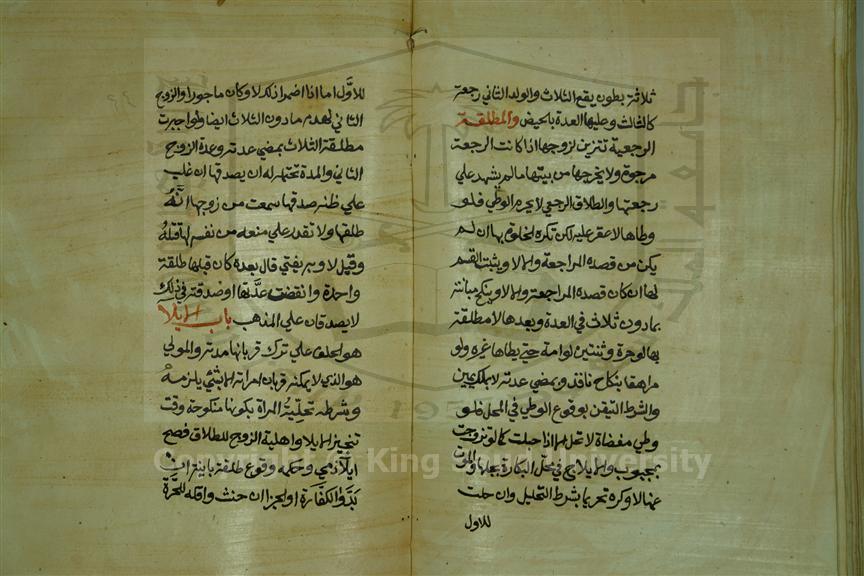 ثلاثة بطون يقع الثلاث والولد الثاني رجعة
كالثالث وعليها العدة بالحيض والمطلقة
الرجعية تتزين لزوجها اذا كانت الرجعة
مرجوة ولا يخرجها من بيتها ما لم يشهد علي
رجعتها والطلاق الرجعي لا يحرم الوطي فلو
وطاها لا عقر عليه لكن تكره الخلوة بها ان لم
يكن من قصده المراجعة والا لا ويثبت القسم
لها ان كان قصده المراجعة والا لا وينكح مبانته
بما دون ثلاث في العدة وبعدها لا مطلقة
بها لو حرة وثنتين لو امة حتي يطاها غيره ولو
مراهقا بنكاح نافذ وتمضي عدته لا بملك يمين
والشرط التيقن بوقوع الوطي في المحل فلو
وطي مفضاة لا تحل الا اذا حبلت كما لو تزوجت
بمجبوب والايلاج في محل البكارة يحلها والموت
عنها لا وكره تحريما بشرط التحليل وان حلت
للاول
للاوَّل اما اذا اضمرا ذلك لا وكان ماجورا والزوج
الثاني يهدم ما دون الثلاث ايضا ولو اخبرت
مطلقة الثلاث بمضي عدته وعدة الزوج
الثاني والمدة تحتمله له ان يصدقها ان غلب
علي ظنه صدقها سمعت من زوجها انَّهُ
طلقها ولا تقدر علي منعه من نفسها لها قتلهُ
وقيل لا وبه يفتي قال بعده كان قبلها طلقة
واحدة وانقضت عدَّتها وصدقته في ذلك
لا يصدقان علي المذهب باب الايلا
هو الحلف علي ترك قربانها مدته والمولي
هو الذي لا يمكنه قربان امراته الا بشي يلزمه
وشرطه محلِّيةُ المراة بكونها منكوحة وقت
تنجيز الايلا واهلية الزوج للطلاق فصح
ايلآ ذمي وحكمه وقوع طلقة باينة ان
برَّ والكفَّارة او الجزا ان حنث واقله للحرَّة
Copyright © King Saud University
جامعة الملك سعود
1957